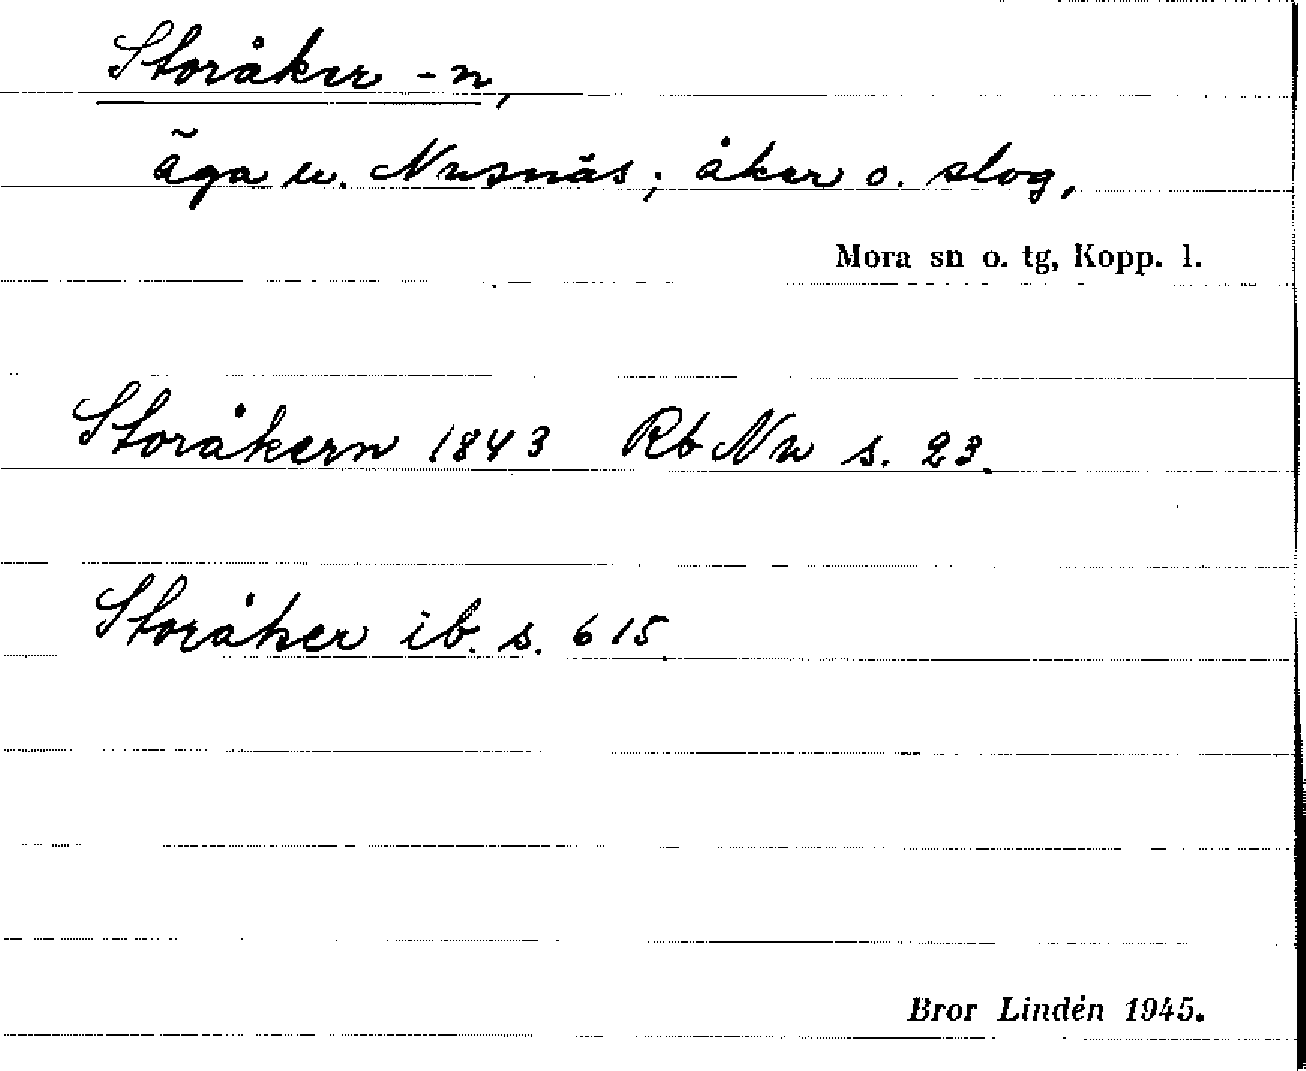 Storåker -n,
äga u. Nusnäs; åker o. slog,
Mora sn o. tg, Kopp. l.
Storåkern 1843 Rb Nu s. 23.
Storåker ib. s. 615.
Bror Lindén 1945.